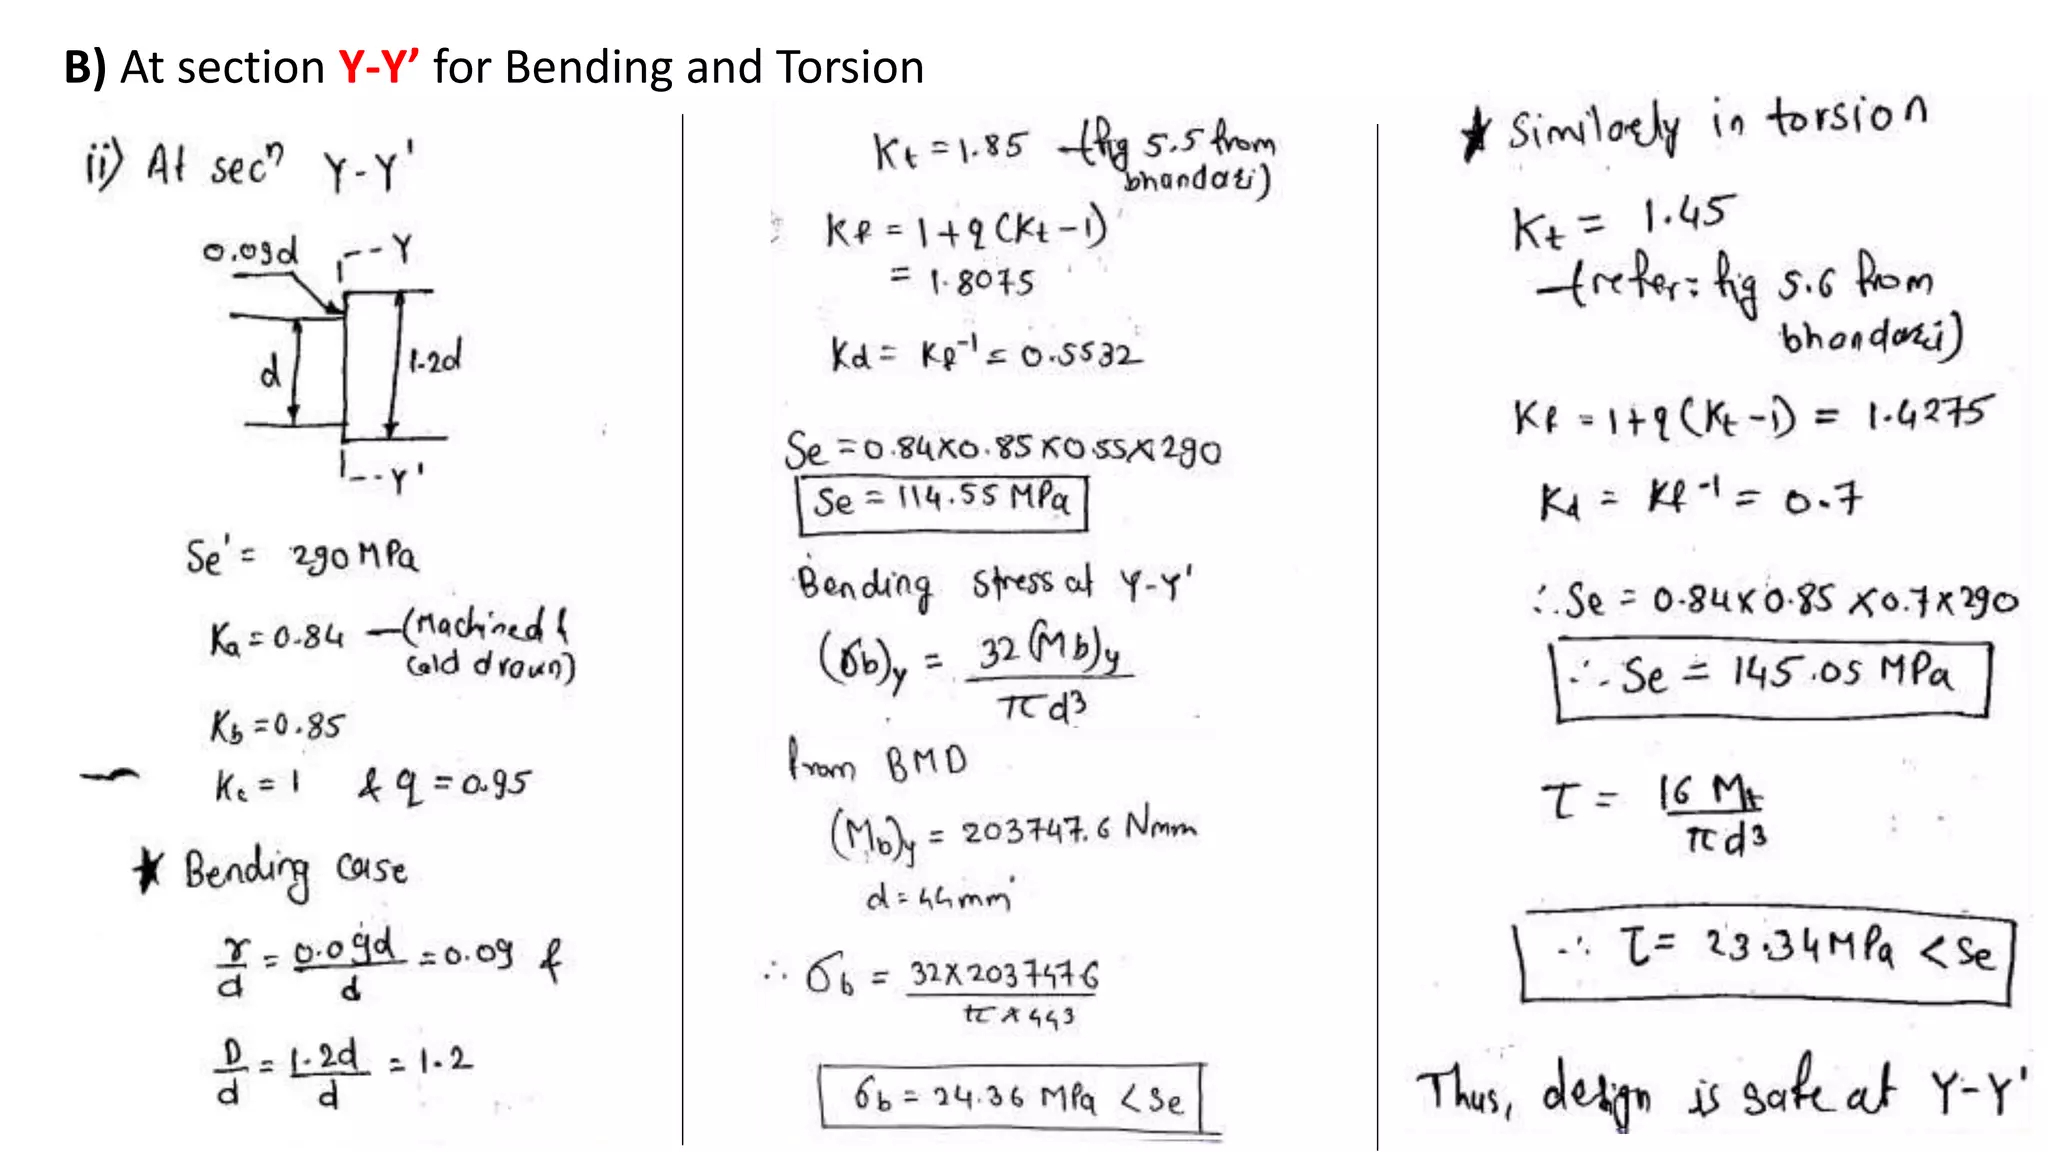 B) At section Y-Y’ for Bending and Torsion
ii) At secⁿ Y-Y'
0.09d
--Y
d
1.2d
--Y'
Se' = 290 MPa
Ka = 0.84 — (Machined &
Cold drawn)
Kb = 0.85
Kc = 1 & q = 0.95
* Bending case
r/d = 0.09d/d = 0.09 &
D/d = 1.2d/d = 1.2
Kt = 1.85 — (fig 5.5 from
bhandari)
Kf = 1 + q (Kt - 1)
= 1.8075
Kd = Kf⁻¹ = 0.5532
Se = 0.84 x 0.85 x 0.55 x 290
Se = 114.55 MPa
Bending stress at Y-Y'
(σb)y = 32 (Mb)y / πd³
from BMD
(Mb)y = 203747.6 Nmm
d = 44mm
∴ σb = 32 x 203747 6 / π x 44³
σb = 24.36 MPa < Se
* Similarly in torsion
Kt = 1.45
— (refer: fig 5.6 from
bhandari)
Kf = 1 + q (Kt - 1) = 1.4275
Kd = Kf⁻¹ = 0.7
∴ Se = 0.84 x 0.85 x 0.7 x 290
∴ Se = 145.05 MPa
τ = 16 Mt / πd³
∴ τ = 23.34 MPa < Se
Thus, design is safe at Y-Y'